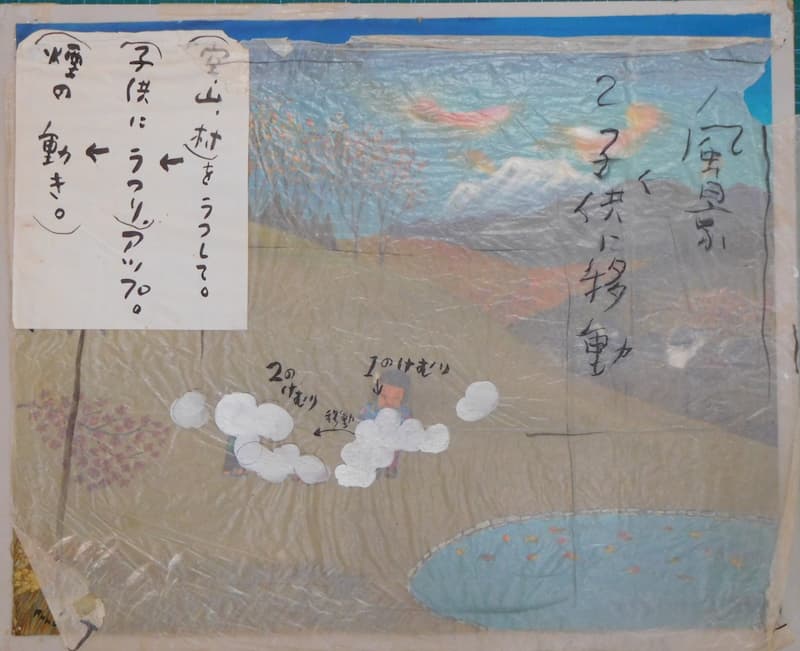 風景
2 子供に移動
(空、山、村)をうつして。
(子供にうつり)アップ。
(煙の動き。)
1のけむり
移動
2の
けむり